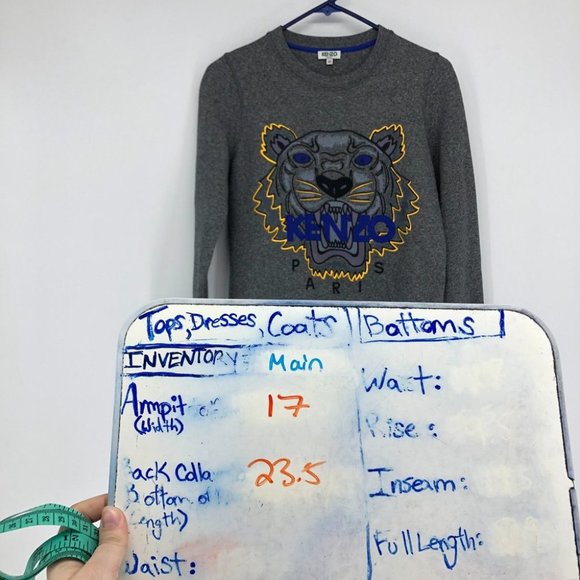 KENZO
KENZO
PARIS
Tops, Dresses, Coats
Bottoms
INVENTORY: Main
Armpit 17
(Width)
ack Colla 23.5
Bottom of
ength)
Waist:
Waist:
Rise:
Inseam:
Full Length: